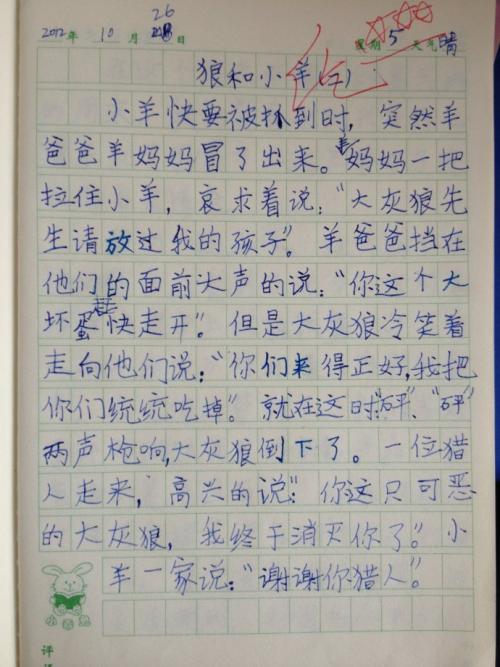 26
2012年 10月 日 星期 5 天气 晴
狼和小羊(二)
小羊快要被抓到时,突然羊
爸爸羊妈妈冒了出来。羊妈妈一把
拉住小羊,哀求着说:“大灰狼先
生请放过我的孩子”。羊爸爸挡在
他们的面前大声的说:“你这个大
坏蛋赶快走开”。但是大灰狼冷笑着
走向他们说:“你们来得正好,我把
你们统统吃掉”。就在这时“砰”、“砰”
两声枪响,大灰狼倒下了。一位猎
人走来,高兴的说:“你这只可恶
的大灰狼,我终于消灭你了”。小
羊一家说:“谢谢你猎人”。
评